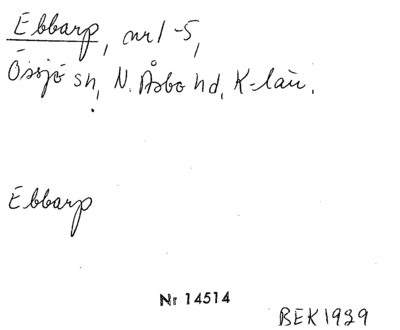 Ebbarp, nr 1-5,
Össjö sn, N. Åsbo hd, K-län.
Ebbarp
Nr 14514
BEK 1929